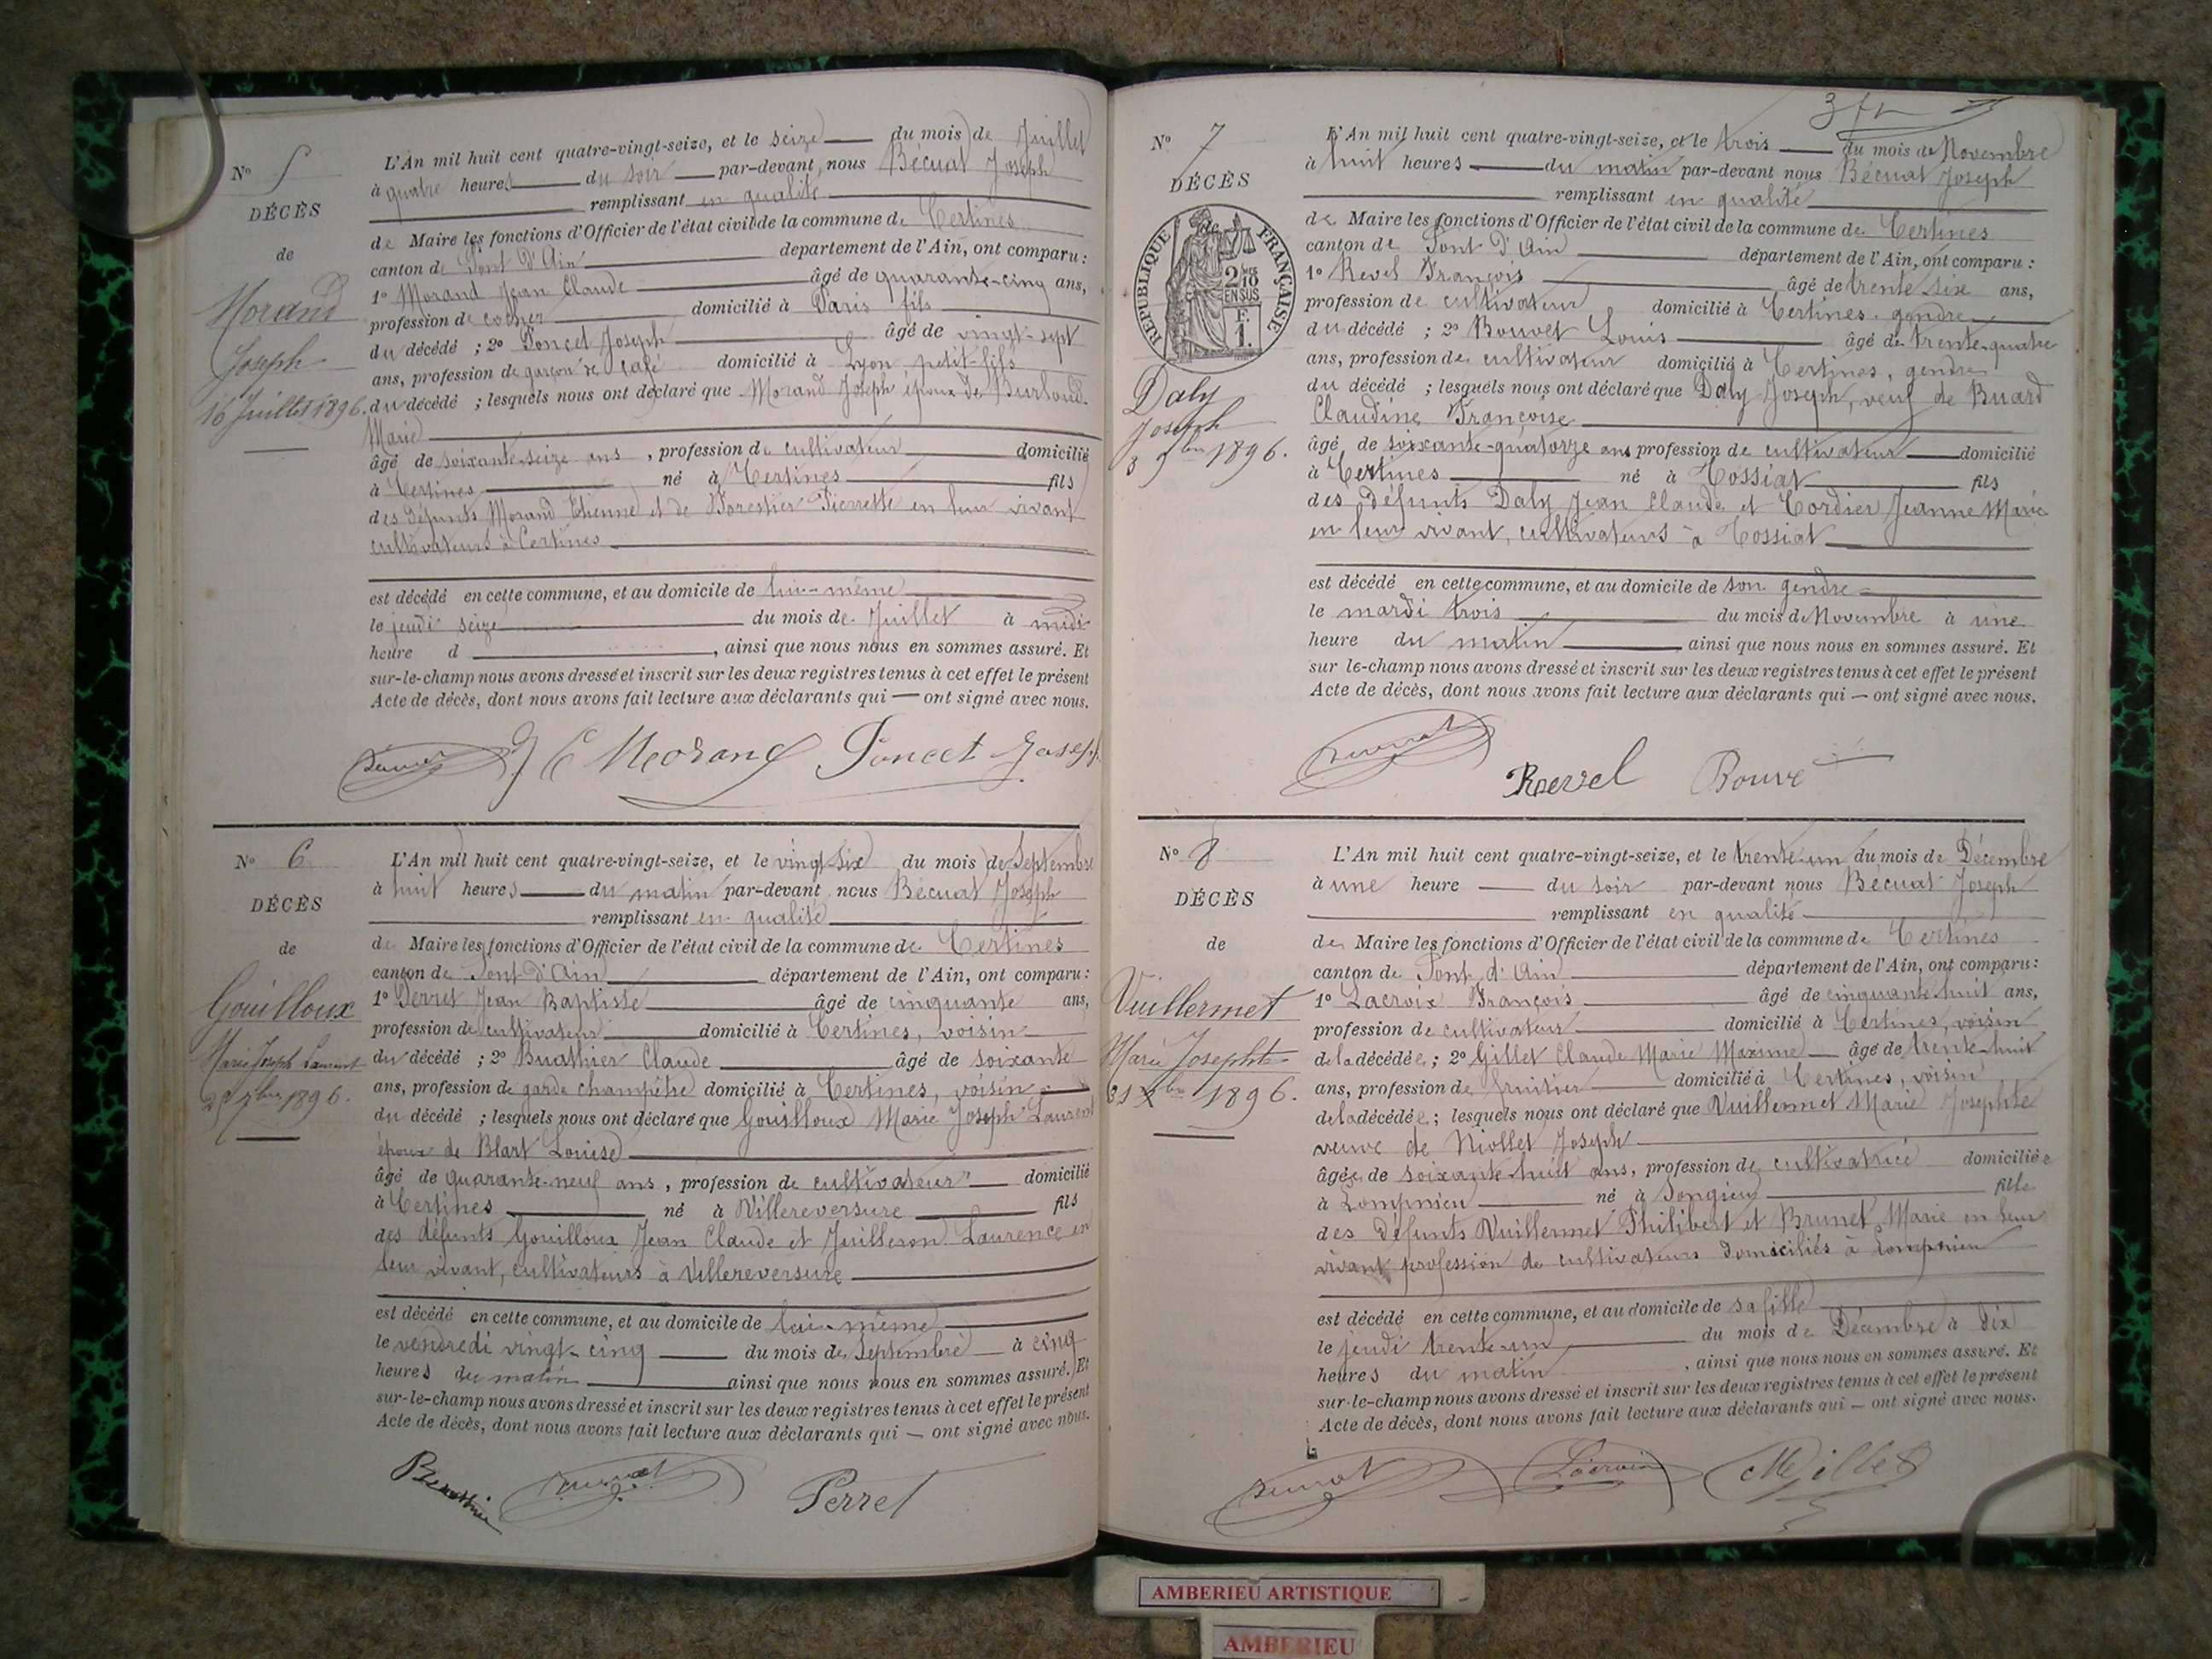 N° 5
DÉCÈS
de
Morand
Joseph
16 Juillet 1896.
L'An mil huit cent quatre-vingt-seize, et le seize du mois de Juillet
à quatre heures du soir par-devant nous Bécuat Joseph
remplissant en qualité
de Maire les fonctions d'Officier de l'état civil de la commune de Certines
canton de Pont d'Ain département de l'Ain, ont comparu :
1° Morand Jean Claude âgé de quarante-cinq ans,
profession de cocher domicilié à Paris fils
du décédé ; 2° Poncet Joseph âgé de vingt-sept
ans, profession de garçon de café domicilié à Lyon petit-fils
du décédé ; lesquels nous ont déclaré que Morand Joseph époux de Burloud
Marie
âgé de soixante-seize ans, profession de cultivateur domicilié
à Certines né à Certines fils
des défunts Morand Etienne et de Forestier Pierrette en leur vivant
cultivateurs à Certines
est décédé en cette commune, et au domicile de lui-même
le jeudi seize du mois de Juillet à midi
heure d , ainsi que nous nous en sommes assuré. Et
sur-le-champ nous avons dressé et inscrit sur les deux registres tenus à cet effet le présent
Acte de décès, dont nous avons fait lecture aux déclarants qui — ont signé avec nous.
J C Morand Poncet Joseph
N° 6
DÉCÈS
de
Gouilloux
Marie Joseph Laurent
25 7bre 1896.
L'An mil huit cent quatre-vingt-seize, et le vingt six du mois de Septembre
à huit heures du matin par-devant nous Bécuat Joseph
remplissant en qualité
de Maire les fonctions d'Officier de l'état civil de la commune de Certines
canton de Pont d'Ain département de l'Ain, ont comparu :
1° Perret Jean Baptiste âgé de cinquante ans,
profession de cultivateur domicilié à Certines, voisin
du décédé ; 2° Buathier Claude âgé de soixante
ans, profession de garde champêtre domicilié à Certines, voisin
du décédé ; lesquels nous ont déclaré que Gouilloux Marie Joseph Laurent
époux de Blart Louise
âgé de quarante-neuf ans, profession de cultivateur domicilié
à Certines né à Villereversure fils
des défunts Gouilloux Jean Claude et Juilleron Laurence en
leur vivant, cultivateurs à Villereversure
est décédé en cette commune, et au domicile de lui-même
le vendredi vingt-cinq du mois de Septembre à cinq
heures du matin ainsi que nous nous en sommes assuré. Et
sur-le-champ nous avons dressé et inscrit sur les deux registres tenus à cet effet le présent
Acte de décès, dont nous avons fait lecture aux déclarants qui — ont signé avec nous.
Perret
N° 7
DÉCÈS
RÉPUBLIQUE FRANÇAISE
2/10 EN SUS
F. 1.
Daly
Joseph
3 9bre 1896.
L'An mil huit cent quatre-vingt-seize, et le trois du mois de Novembre
à huit heures du matin par-devant nous Bécuat Joseph
remplissant en qualité
de Maire les fonctions d'Officier de l'état civil de la commune de Certines
canton de Pont d'Ain département de l'Ain, ont comparu :
1° Revel François âgé de trente six ans,
profession de cultivateur domicilié à Certines, gendre
du décédé ; 2° Bouvet Louis âgé de trente-quatre
ans, profession de cultivateur domicilié à Certines, gendre
du décédé ; lesquels nous ont déclaré que Daly Joseph, veuf de Buard
Claudine Françoise
âgé de soixante-quatorze ans profession de cultivateur domicilié
à Certines né à Tossiat fils
des défunts Daly Jean Claude et Cordier Jeanne Marie
en leur vivant, cultivateurs à Tossiat
est décédé en cette commune, et au domicile de son gendre
le mardi trois du mois de Novembre à une
heure du matin ainsi que nous nous en sommes assuré. Et
sur le-champ nous avons dressé et inscrit sur les deux registres tenus à cet effet le présent
Acte de décès, dont nous avons fait lecture aux déclarants qui — ont signé avec nous.
Revel
N° 8
DÉCÈS
de
Vuillermet
Marie Josephte
31 Xbre 1896.
L'An mil huit cent quatre-vingt-seize, et le trente-un du mois de Décembre
à une heure du soir par-devant nous Bécuat Joseph
remplissant en qualité
de Maire les fonctions d'Officier de l'état civil de la commune de Certines
canton de Pont d'Ain département de l'Ain, ont comparu :
1° Lacroix François âgé de cinquante-huit ans,
profession de cultivateur domicilié à Certines, voisin
de la décédée ; 2° Gillet Claude Marie Maxime âgé de trente-huit
ans, profession de fruitier domicilié à Certines, voisin
de la décédée ; lesquels nous ont déclaré que Vuillermet Marie Josephte
veuve de Niollet Joseph
âgée de soixante-huit ans, profession de cultivatrice domiciliée
à Lompnieu né à Songieu fille
des défunts Vuillermet Philibert et Brunet Marie en leur
vivant profession de cultivateurs domiciliés à Lompnieu
est décédé en cette commune, et au domicile de sa fille
le jeudi trente-un du mois de Décembre à dix
heures du matin , ainsi que nous nous en sommes assuré. Et
sur-le-champ nous avons dressé et inscrit sur les deux registres tenus à cet effet le présent
Acte de décès, dont nous avons fait lecture aux déclarants qui — ont signé avec nous.
Lacroix
AMBERIEU ARTISTIQUE
AMBERIEU